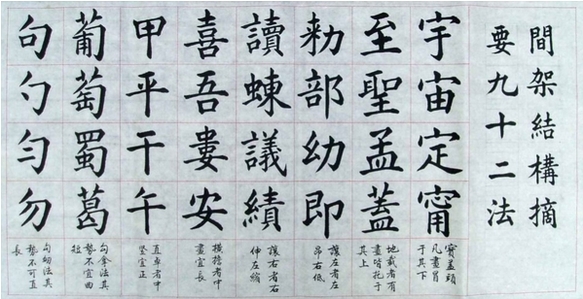 間架結構摘
要九十二法
宇宙定甯
寶蓋頭
凡畫冐
于其下
至聖孟蓋
地載者有
畫皆托于
其上
勑部幼即
讓左者左
昂右低
讀蝀議績
讓右者右
伸左縮
喜吾婁安
橫擔者中
畫宜長
甲平干午
直卓者中
竖宜正
葡萄蜀葛
勾拿法其
勢不宜曲
短
句勺勻勿
勾努法其
勢不可直
長